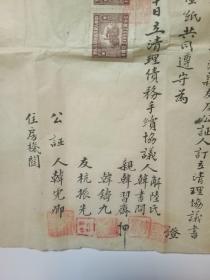 公証人訂立清理協議書
紙共同遵守為
證
日立清理債務手續協議人解陸氏
韓書閣
親韓習齋
韓鑄九
友杭振先
公証人韓憲卿
住房機關